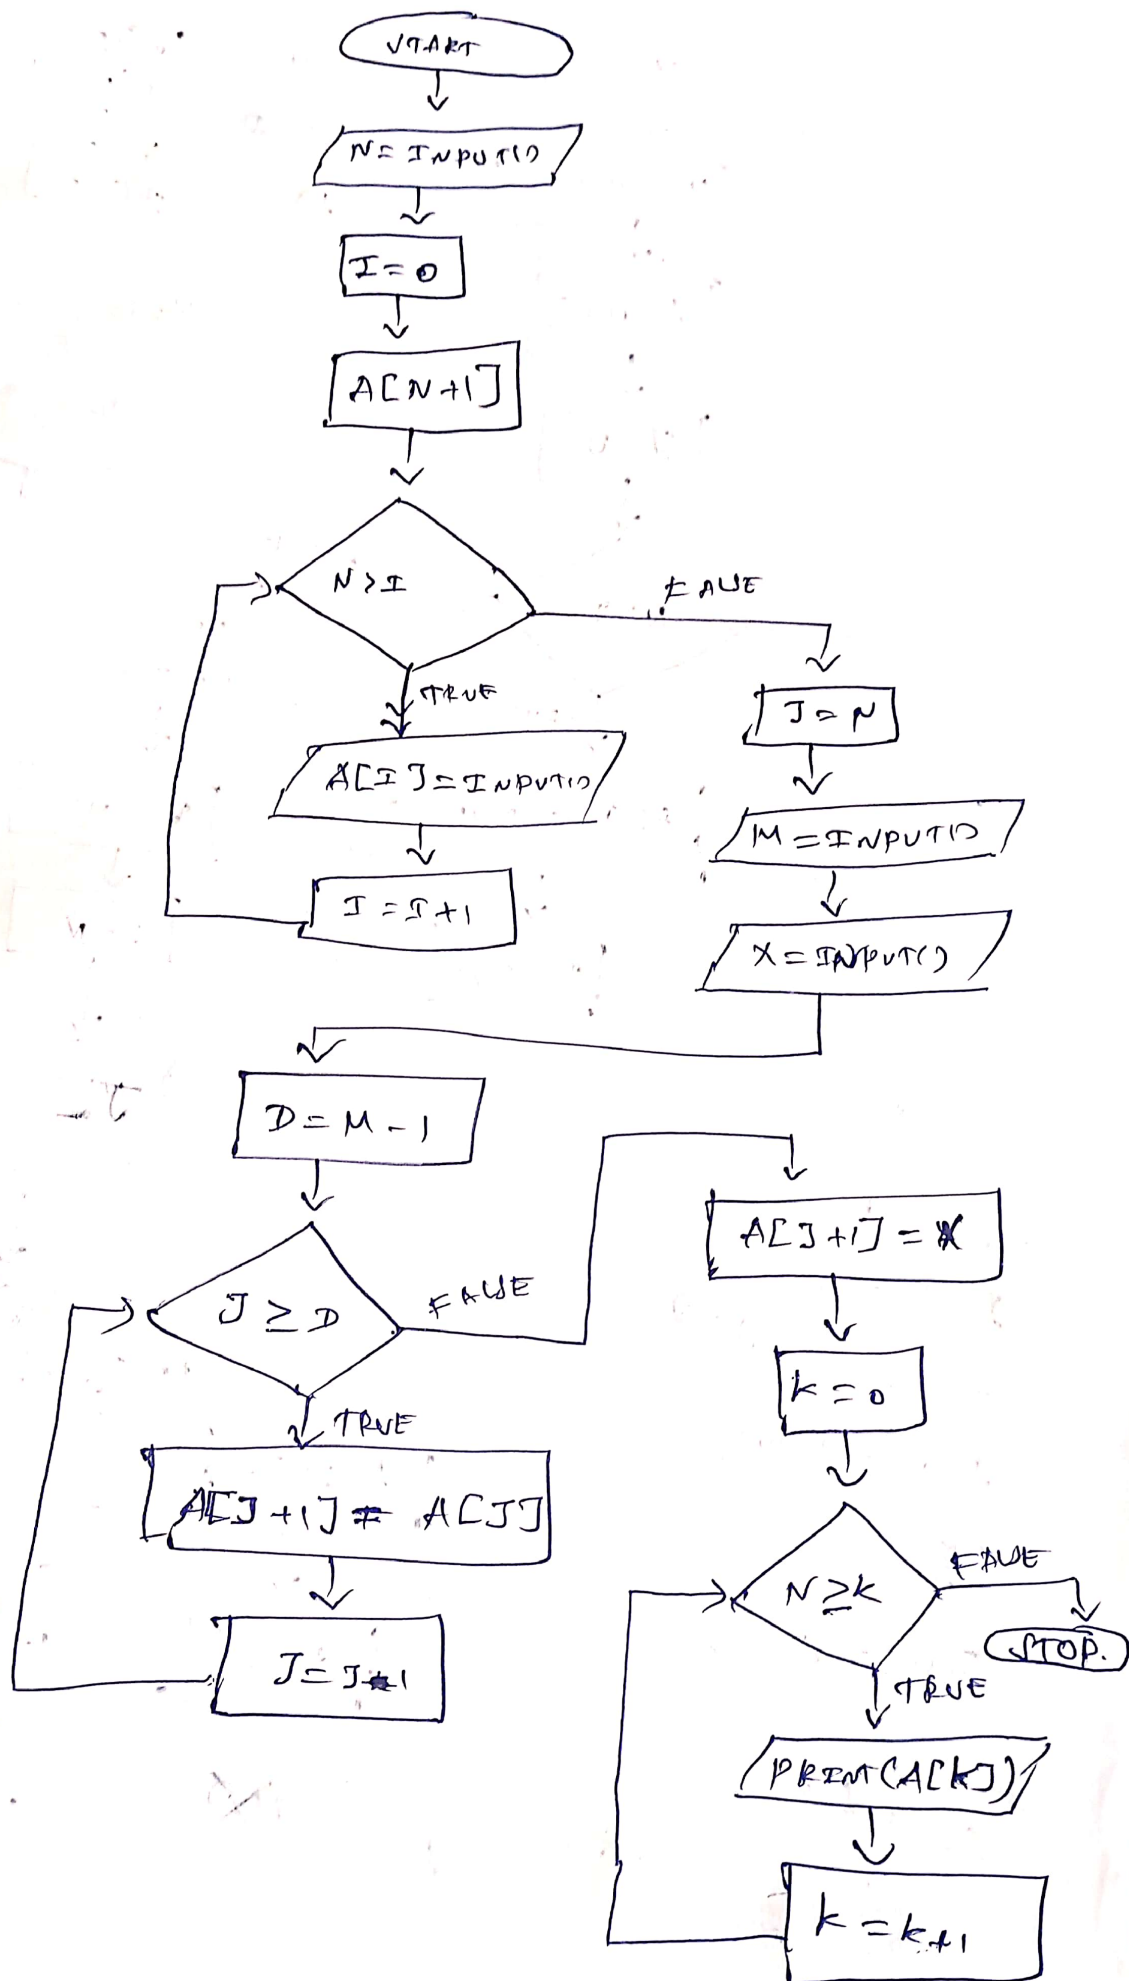 START
N = INPUT()
I = 0
A[N+1]
N > I
FALSE
TRUE
A[I] = INPUT()
I = I + 1
J = N
M = INPUT()
X = INPUT()
D = M - 1
J ≥ D
FALSE
TRUE
A[J+1] = A[J]
A[J+1] = X
K = 0
N ≥ K
FALSE
STOP.
TRUE
PRINT(A[K])
K = K+1